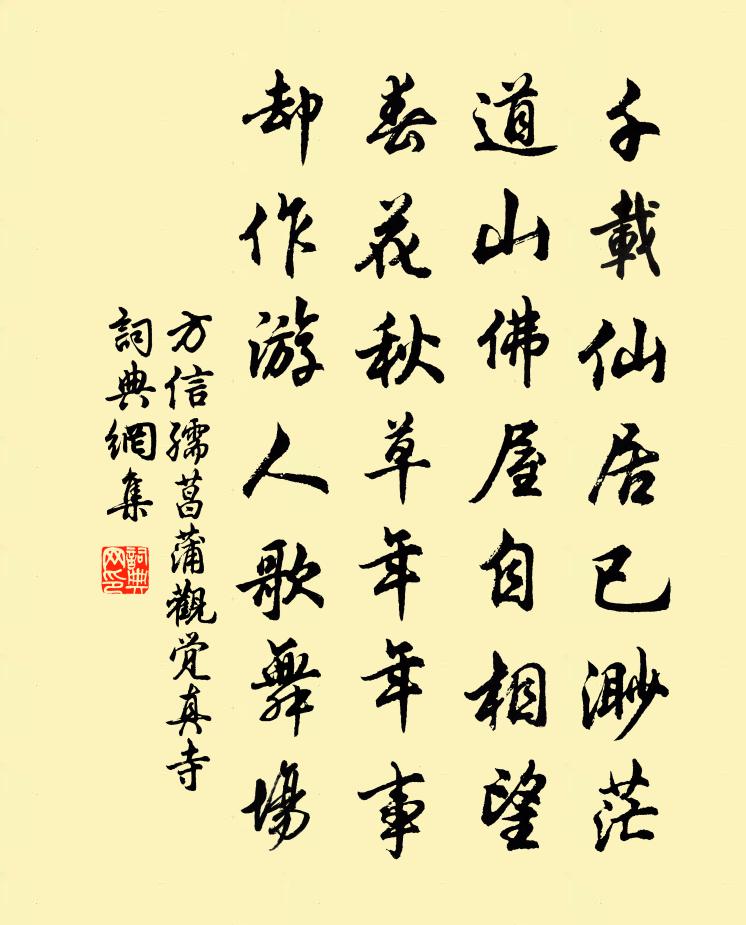 千載仙居已渺茫
道山佛屋自相望
春花秋草年年事
却作游人歌舞場
方信孺菖蒲觀覺真寺
詞典網集
詞典
网印